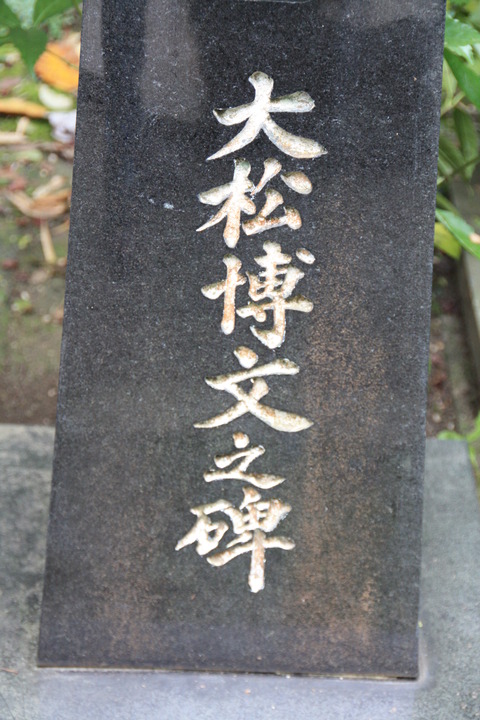 大松博文之碑